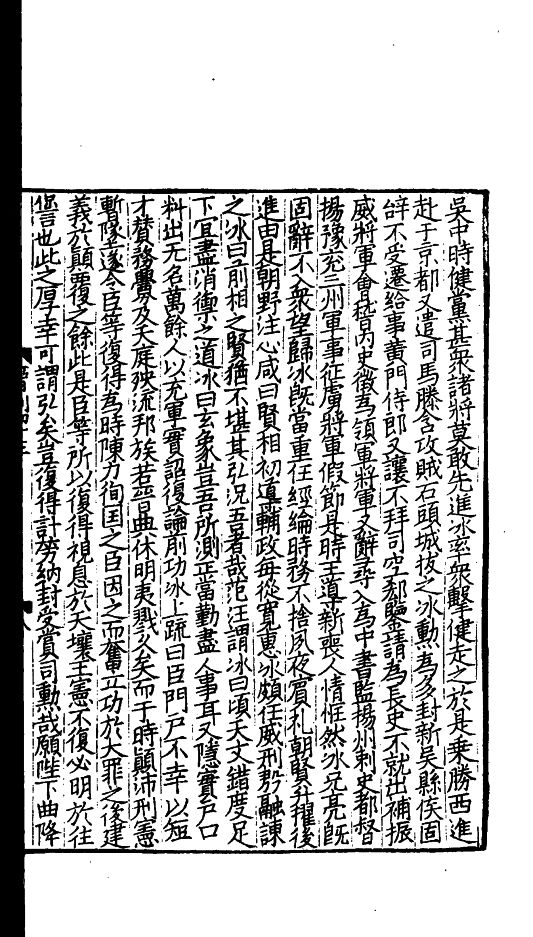 吳中時健黨甚衆諸將莫敢先進冰率衆擊健走之於是乗勝西進
赴于京都又遣司馬滕含攻賊石頭城拔之冰勲為多封新吳縣侯固
辞不受遷給事黄門侍郎又讓不拜司空郗鑒請為長史不就出補振
威將軍會稽内史徵為領軍將軍又辭尋入為中書監揚州刺史都督
揚豫兖三州軍事征虜將軍假節是時王導新喪人情恇然冰兄亮旣
固辭不入衆望歸冰旣當重任經綸時務不捨夙夜賓礼朝賢升擢後
進由是朝野注心咸曰賢相初導輔政每從寛惠冰頗任威刑殷融諫
之冰曰前相之賢猶不堪其弘况吾者哉范汪謂冰曰頃天文錯度足
下宜盡消禦之道冰曰玄象豈吾所測正當勤盡人事耳又隱實戸口
料出无名萬餘人以充軍實詔復論前功冰上疏曰臣門戸不幸以短
才贊務釁及天庭殃流邦族若晉典休明夷戮久矣而于時顛沛刑憲
暫墜遂令臣等復得為時陳力徇国之臣因之而奮立功於大罪之後建
義於顛覆之餘此是臣等所以復得視息於天壤王憲不復必明於往
愆也此之厚幸可謂弘矣豈復得計勞納封受賞司勲哉願陛下曲降